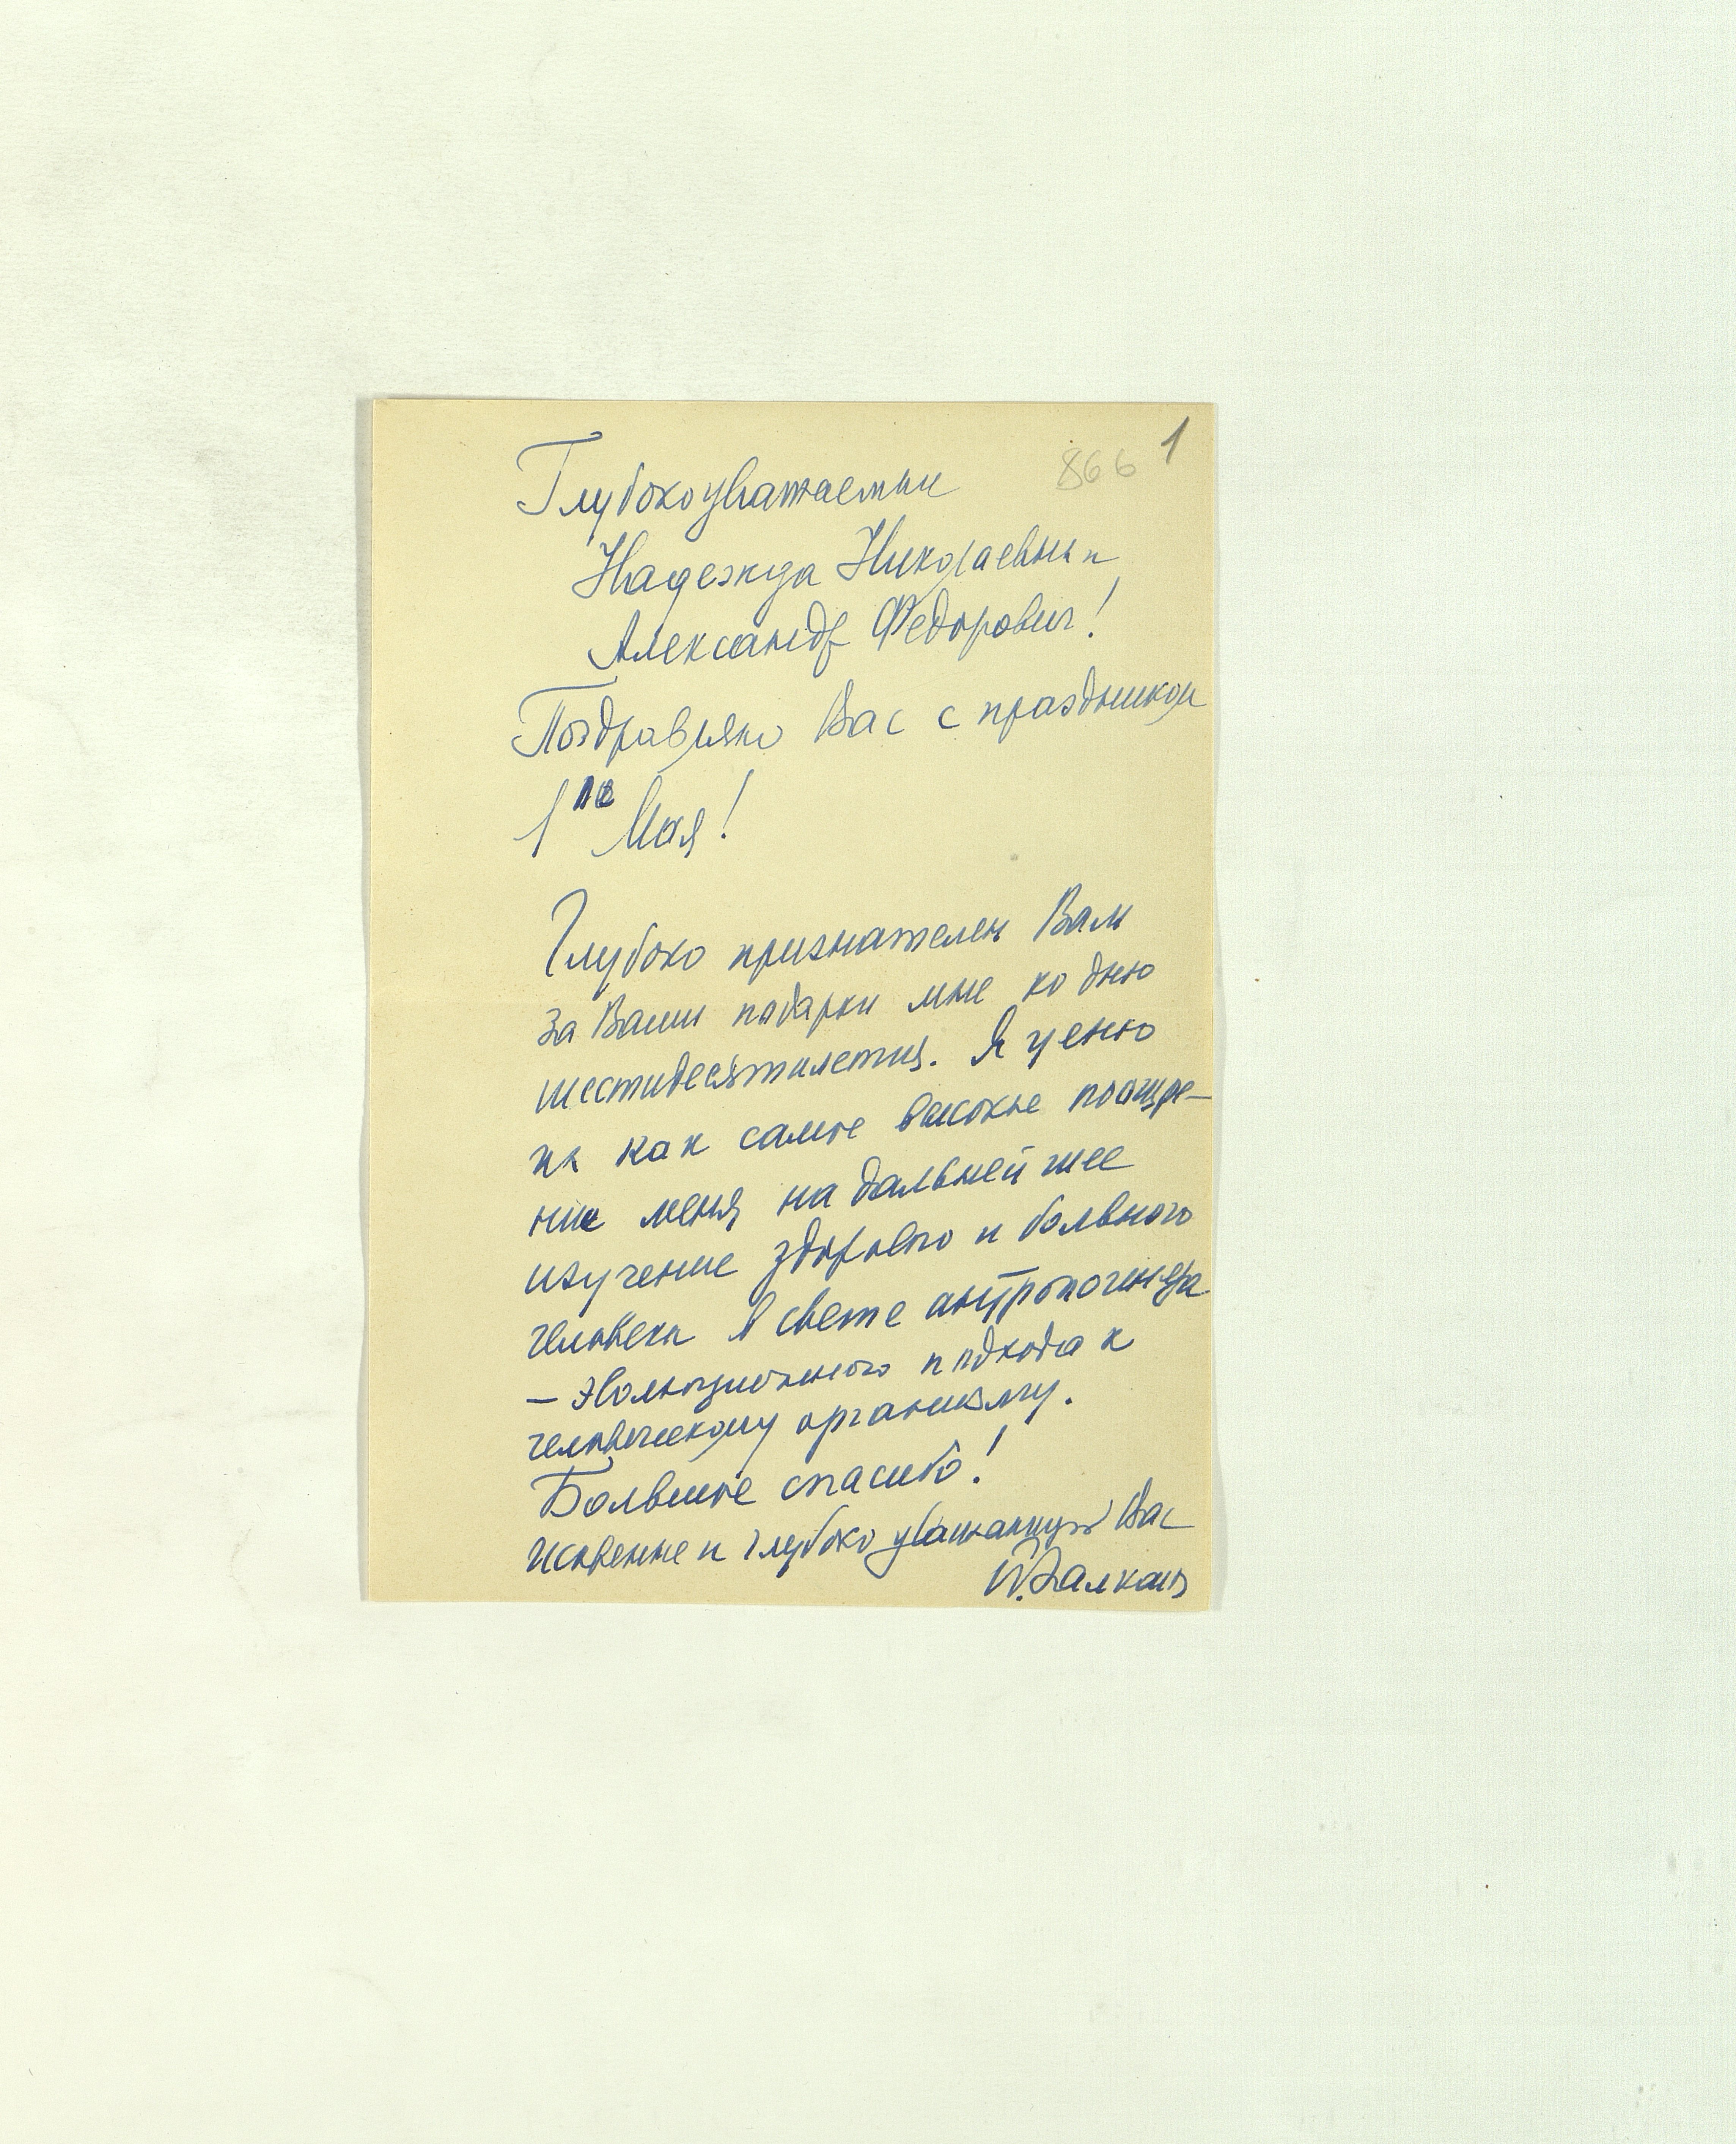 866 1
Глубокоуважаемые
Надежда Николаевна и
Александр Федорович!
Поздравляю Вас с праздником
1го Мая!
Глубоко признателен Вам
за Ваши подарки мне ко дню
шестидесятилетия. Я ценю
их как самое высокое поощре-
ние меня на дальнейшее
изучение здорового и больного
человека в свете антропогенеза
— эволюционного подхода к
человеческому организму.
Большое спасибо!
Искренне и глубоко уважающий Вас
Залкинд